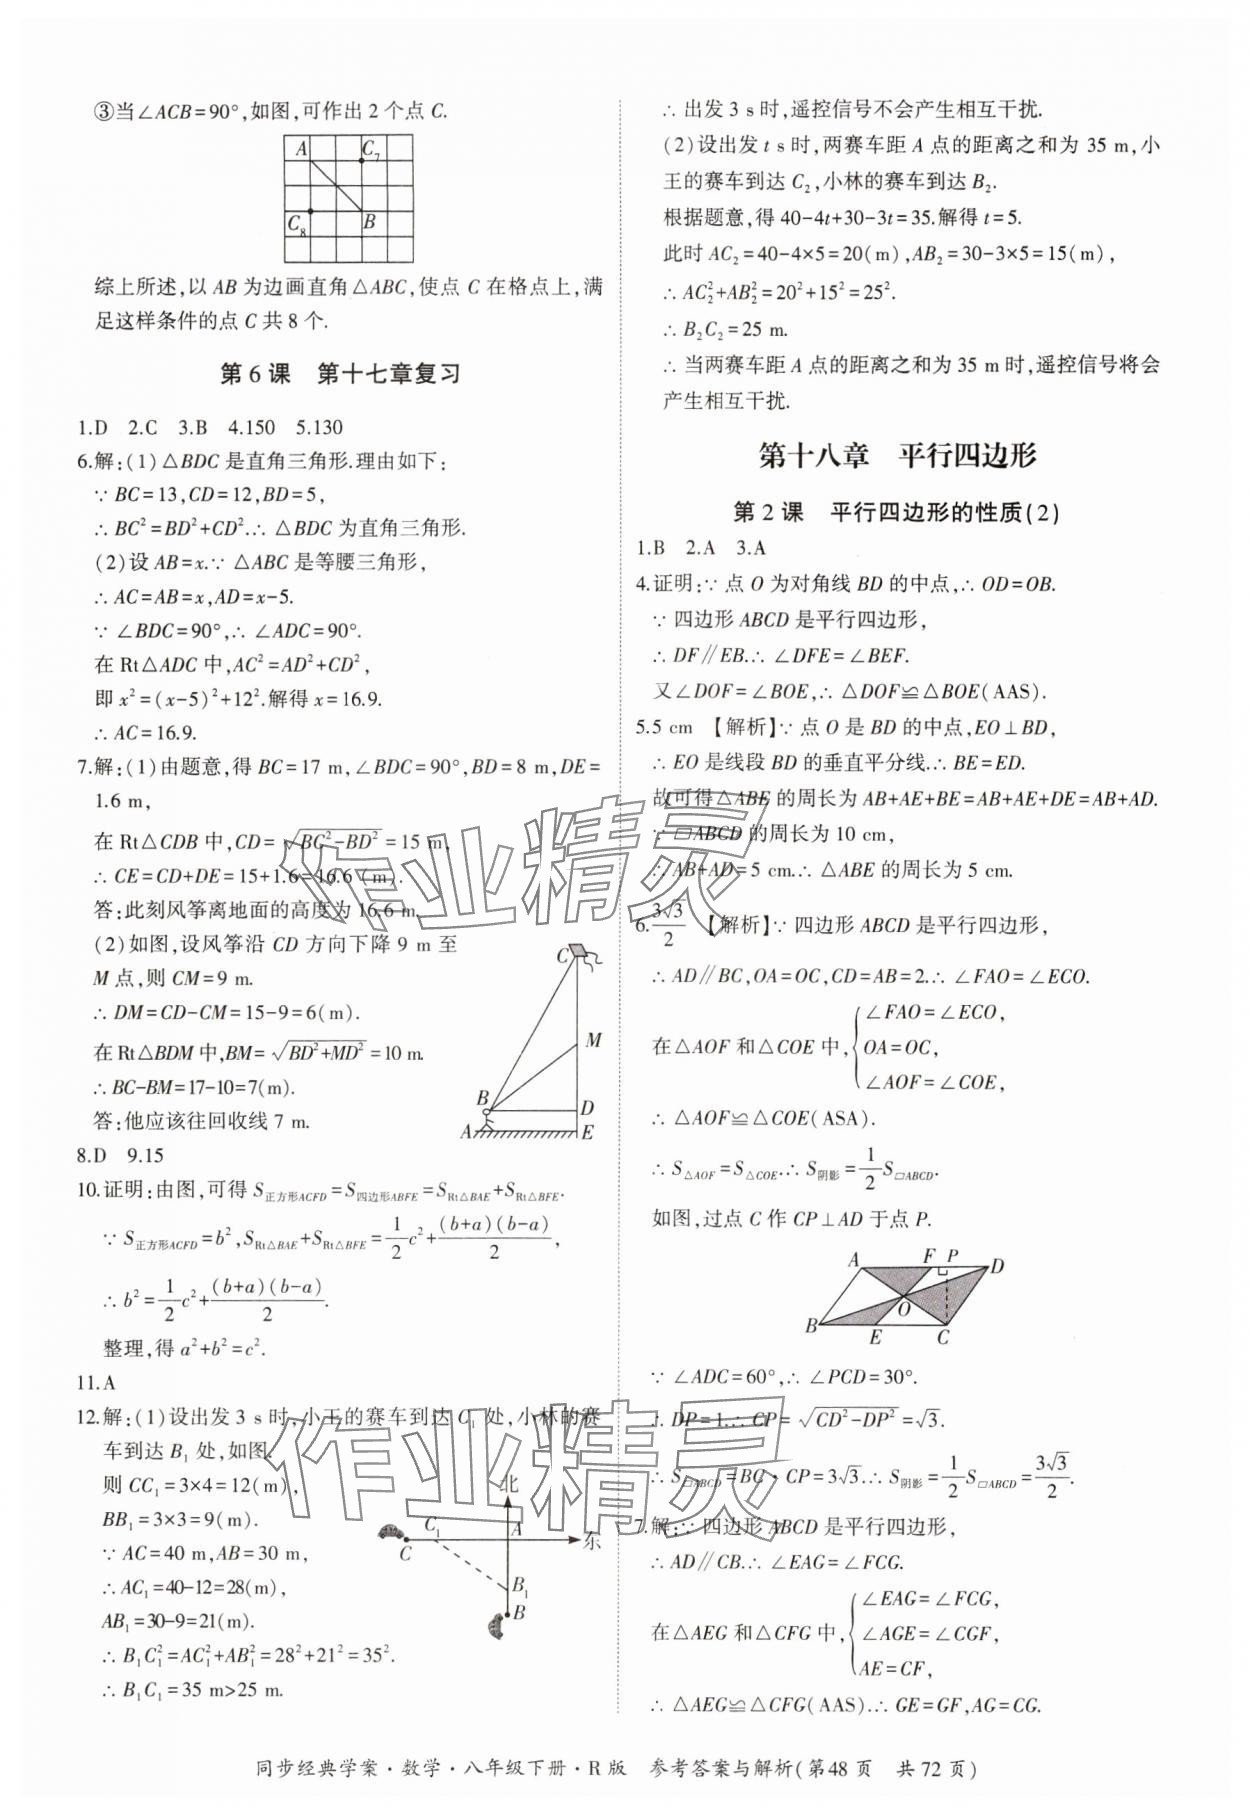 ③当∠ACB=90°,如图,可作出2个点C.
A C₇
C₈ B
综上所述,以AB为边画直角△ABC,使点C在格点上,满
足这样条件的点C共8个.
第6课 第十七章复习
1.D 2.C 3.B 4.150 5.130
6.解:(1)△BDC是直角三角形.理由如下:
∵BC=13,CD=12,BD=5,
∴BC²=BD²+CD².∴△BDC为直角三角形.
(2)设AB=x.∵△ABC是等腰三角形,
∴AC=AB=x,AD=x-5.
∵∠BDC=90°,∴∠ADC=90°.
在Rt△ADC中,AC²=AD²+CD²,
即x²=(x-5)²+12².解得x=16.9.
∴AC=16.9.
7.解:(1)由题意,得BC=17 m,∠BDC=90°,BD=8 m,DE=
1.6 m,
在Rt△CDB中,CD=√(BC²-BD²)=15 m,
∴CE=CD+DE=15+1.6=16.6(m).
答:此刻风筝离地面的高度为16.6 m.
(2)如图,设风筝沿CD方向下降9 m至
M点,则CM=9 m.
∴DM=CD-CM=15-9=6(m).
在Rt△BDM中,BM=√(BD²+MD²)=10 m.
∴BC-BM=17-10=7(m).
答:他应该往回收线7 m.
C
M
B D
A E
8.D 9.15
10.证明:由图,可得S正方形ACFD=S四边形ABFE=SRt△BAE+SRt△BFE.
∵S正方形ACFD=b²,SRt△BAE+SRt△BFE=1/2c²+(b+a)(b-a)/2,
∴b²=1/2c²+(b+a)(b-a)/2.
整理,得a²+b²=c².
11.A
12.解:(1)设出发3 s时,小王的赛车到达C₁处,小林的赛
车到达B₁处,如图.
则CC₁=3×4=12(m),
BB₁=3×3=9(m).
∵AC=40 m,AB=30 m,
∴AC₁=40-12=28(m),
AB₁=30-9=21(m).
∴B₁C₁²=AC₁²+AB₁²=28²+21²=35².
∴B₁C₁=35 m>25 m.
北
C₁ A 东
C
B₁
B
∴出发3 s时,遥控信号不会产生相互干扰.
(2)设出发t s时,两赛车距A点的距离之和为35 m,小
王的赛车到达C₂,小林的赛车到达B₂.
根据题意,得40-4t+30-3t=35.解得t=5.
此时AC₂=40-4×5=20(m),AB₂=30-3×5=15(m),
∴AC₂²+AB₂²=20²+15²=25².
∴B₂C₂=25 m.
∴当两赛车距A点的距离之和为35 m时,遥控信号将会
产生相互干扰.
第十八章 平行四边形
第2课 平行四边形的性质(2)
1.B 2.A 3.A
4.证明:∵点O为对角线BD的中点,∴OD=OB.
∵四边形ABCD是平行四边形,
∴DF∥EB.∴∠DFE=∠BEF.
又∠DOF=∠BOE,∴△DOF≌△BOE(AAS).
5.5 cm 【解析】∵点O是BD的中点,EO⊥BD,
∴EO是线段BD的垂直平分线.∴BE=ED.
故可得△ABE的周长为AB+AE+BE=AB+AE+DE=AB+AD.
∵▱ABCD的周长为10 cm,
∴AB+AD=5 cm.∴△ABE的周长为5 cm.
6.3√3/2 【解析】∵四边形ABCD是平行四边形,
∴AD∥BC,OA=OC,CD=AB=2.∴∠FAO=∠ECO.
在△AOF和△COE中,{∠FAO=∠ECO,
OA=OC,
∠AOF=∠COE,
∴△AOF≌△COE(ASA).
∴S△AOF=S△COE.∴S阴影=1/2S▱ABCD.
如图,过点C作CP⊥AD于点P.
A F P D
O
B E C
∵∠ADC=60°,∴∠PCD=30°.
∴DP=1.∴CP=√(CD²-DP²)=√3.
∴S▱ABCD=BC·CP=3√3.∴S阴影=1/2S▱ABCD=3√3/2.
7.解:∵四边形ABCD是平行四边形,
∴AD∥CB.∴∠EAG=∠FCG.
在△AEG和△CFG中,{∠EAG=∠FCG,
∠AGE=∠CGF,
AE=CF,
∴△AEG≌△CFG(AAS).∴GE=GF,AG=CG.
作业精灵
作业精灵
同步经典学案·数学·八年级下册·R版 参考答案与解析(第48页 共72页)